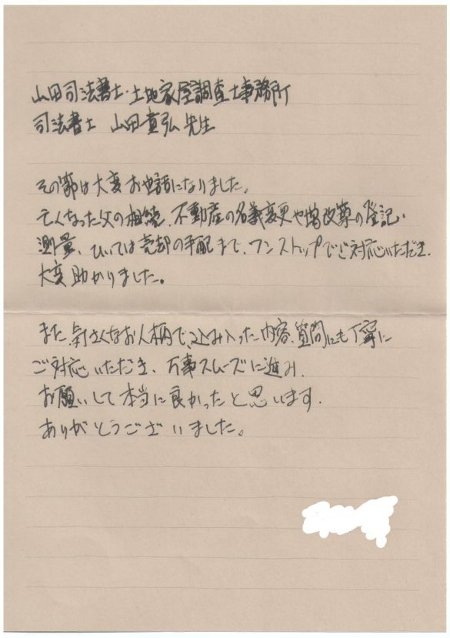 山田司法書士・土地家屋調査士事務所
司法書士 山田貴弘 先生
その節は大変お世話になりました。
亡くなった父の相続、不動産の名義変更や増改築の登記・
測量、ひいては売却の手配まで、ワンストップでご対応いただき、
大変助かりました。
また、気さくなお人柄で、込み入った内容、質問にも丁寧に
ご対応いただき、万事スムーズに進み、
お願いして本当に良かったと思います。
ありがとうございました。